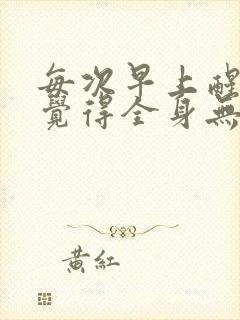 每次早上醒
覺得全身無
黃紅